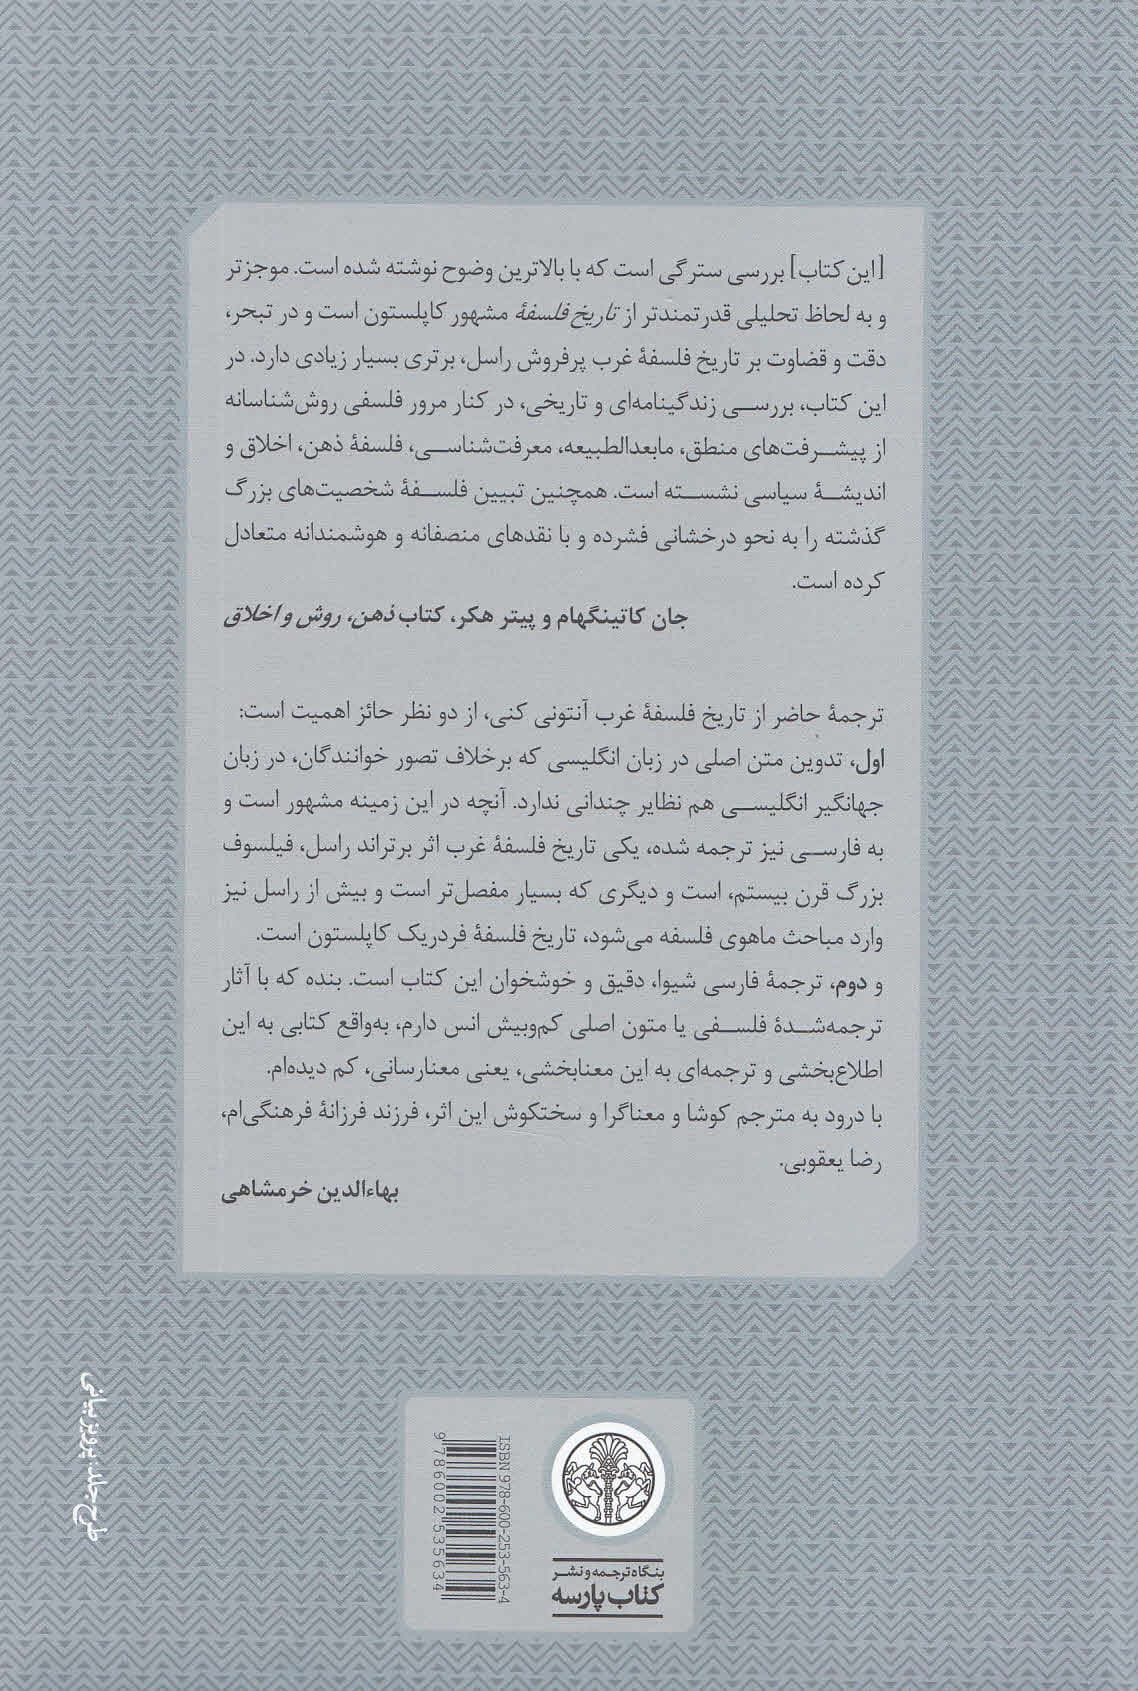 [این کتاب] بررسی سترگی است که با بالاترین وضوح نوشته شده است. موجزتر
و به لحاظ تحلیلی قدرتمندتر از تاریخ فلسفهٔ مشهور کاپلستون است و در تبحر،
دقت و قضاوت بر تاریخ فلسفهٔ غرب پرفروش راسل، برتری بسیار زیادی دارد. در
این کتاب، بررسی زندگینامه‌ای و تاریخی، در کنار مرور فلسفی روش‌شناسانه
از پیشرفت‌های منطق، مابعدالطبیعه، معرفت‌شناسی، فلسفهٔ ذهن، اخلاق و
اندیشهٔ سیاسی نشسته است. همچنین تبیین فلسفهٔ شخصیت‌های بزرگ
گذشته را به نحو درخشانی فشرده و با نقدهای منصفانه و هوشمندانه متعادل
کرده است.
جان کاتینگهام و پیتر هکر، کتاب ذهن، روش و اخلاق
ترجمهٔ حاضر از تاریخ فلسفهٔ غرب آنتونی کنی، از دو نظر حائز اهمیت است:
اول، تدوین متن اصلی در زبان انگلیسی که برخلاف تصور خوانندگان، در زبان
جهانگیر انگلیسی هم نظایر چندانی ندارد. آنچه در این زمینه مشهور است و
به فارسی نیز ترجمه شده، یکی تاریخ فلسفهٔ غرب اثر برتراند راسل، فیلسوف
بزرگ قرن بیستم، است و دیگری که بسیار مفصل‌تر است و بیش از راسل نیز
وارد مباحث ماهوی فلسفه می‌شود، تاریخ فلسفهٔ فردریک کاپلستون است.
و دوم، ترجمهٔ فارسی شیوا، دقیق و خوشخوان این کتاب است. بنده که با آثار
ترجمه‌شدهٔ فلسفی یا متون اصلی کم‌وبیش انس دارم، به‌واقع کتابی به این
اطلاع‌بخشی و ترجمه‌ای به این معنابخشی، یعنی معنارسانی، کم دیده‌ام.
با درود به مترجم کوشا و معناگرا و سختکوش این اثر، فرزند فرزانهٔ فرهنگی‌ام،
رضا یعقوبی.
بهاءالدین خرمشاهی
طرح جلد: پرویز بیانی
ISBN 978-600-253-563-4
9786002535634
بنگاه ترجمه و نشر
کتاب پارسه